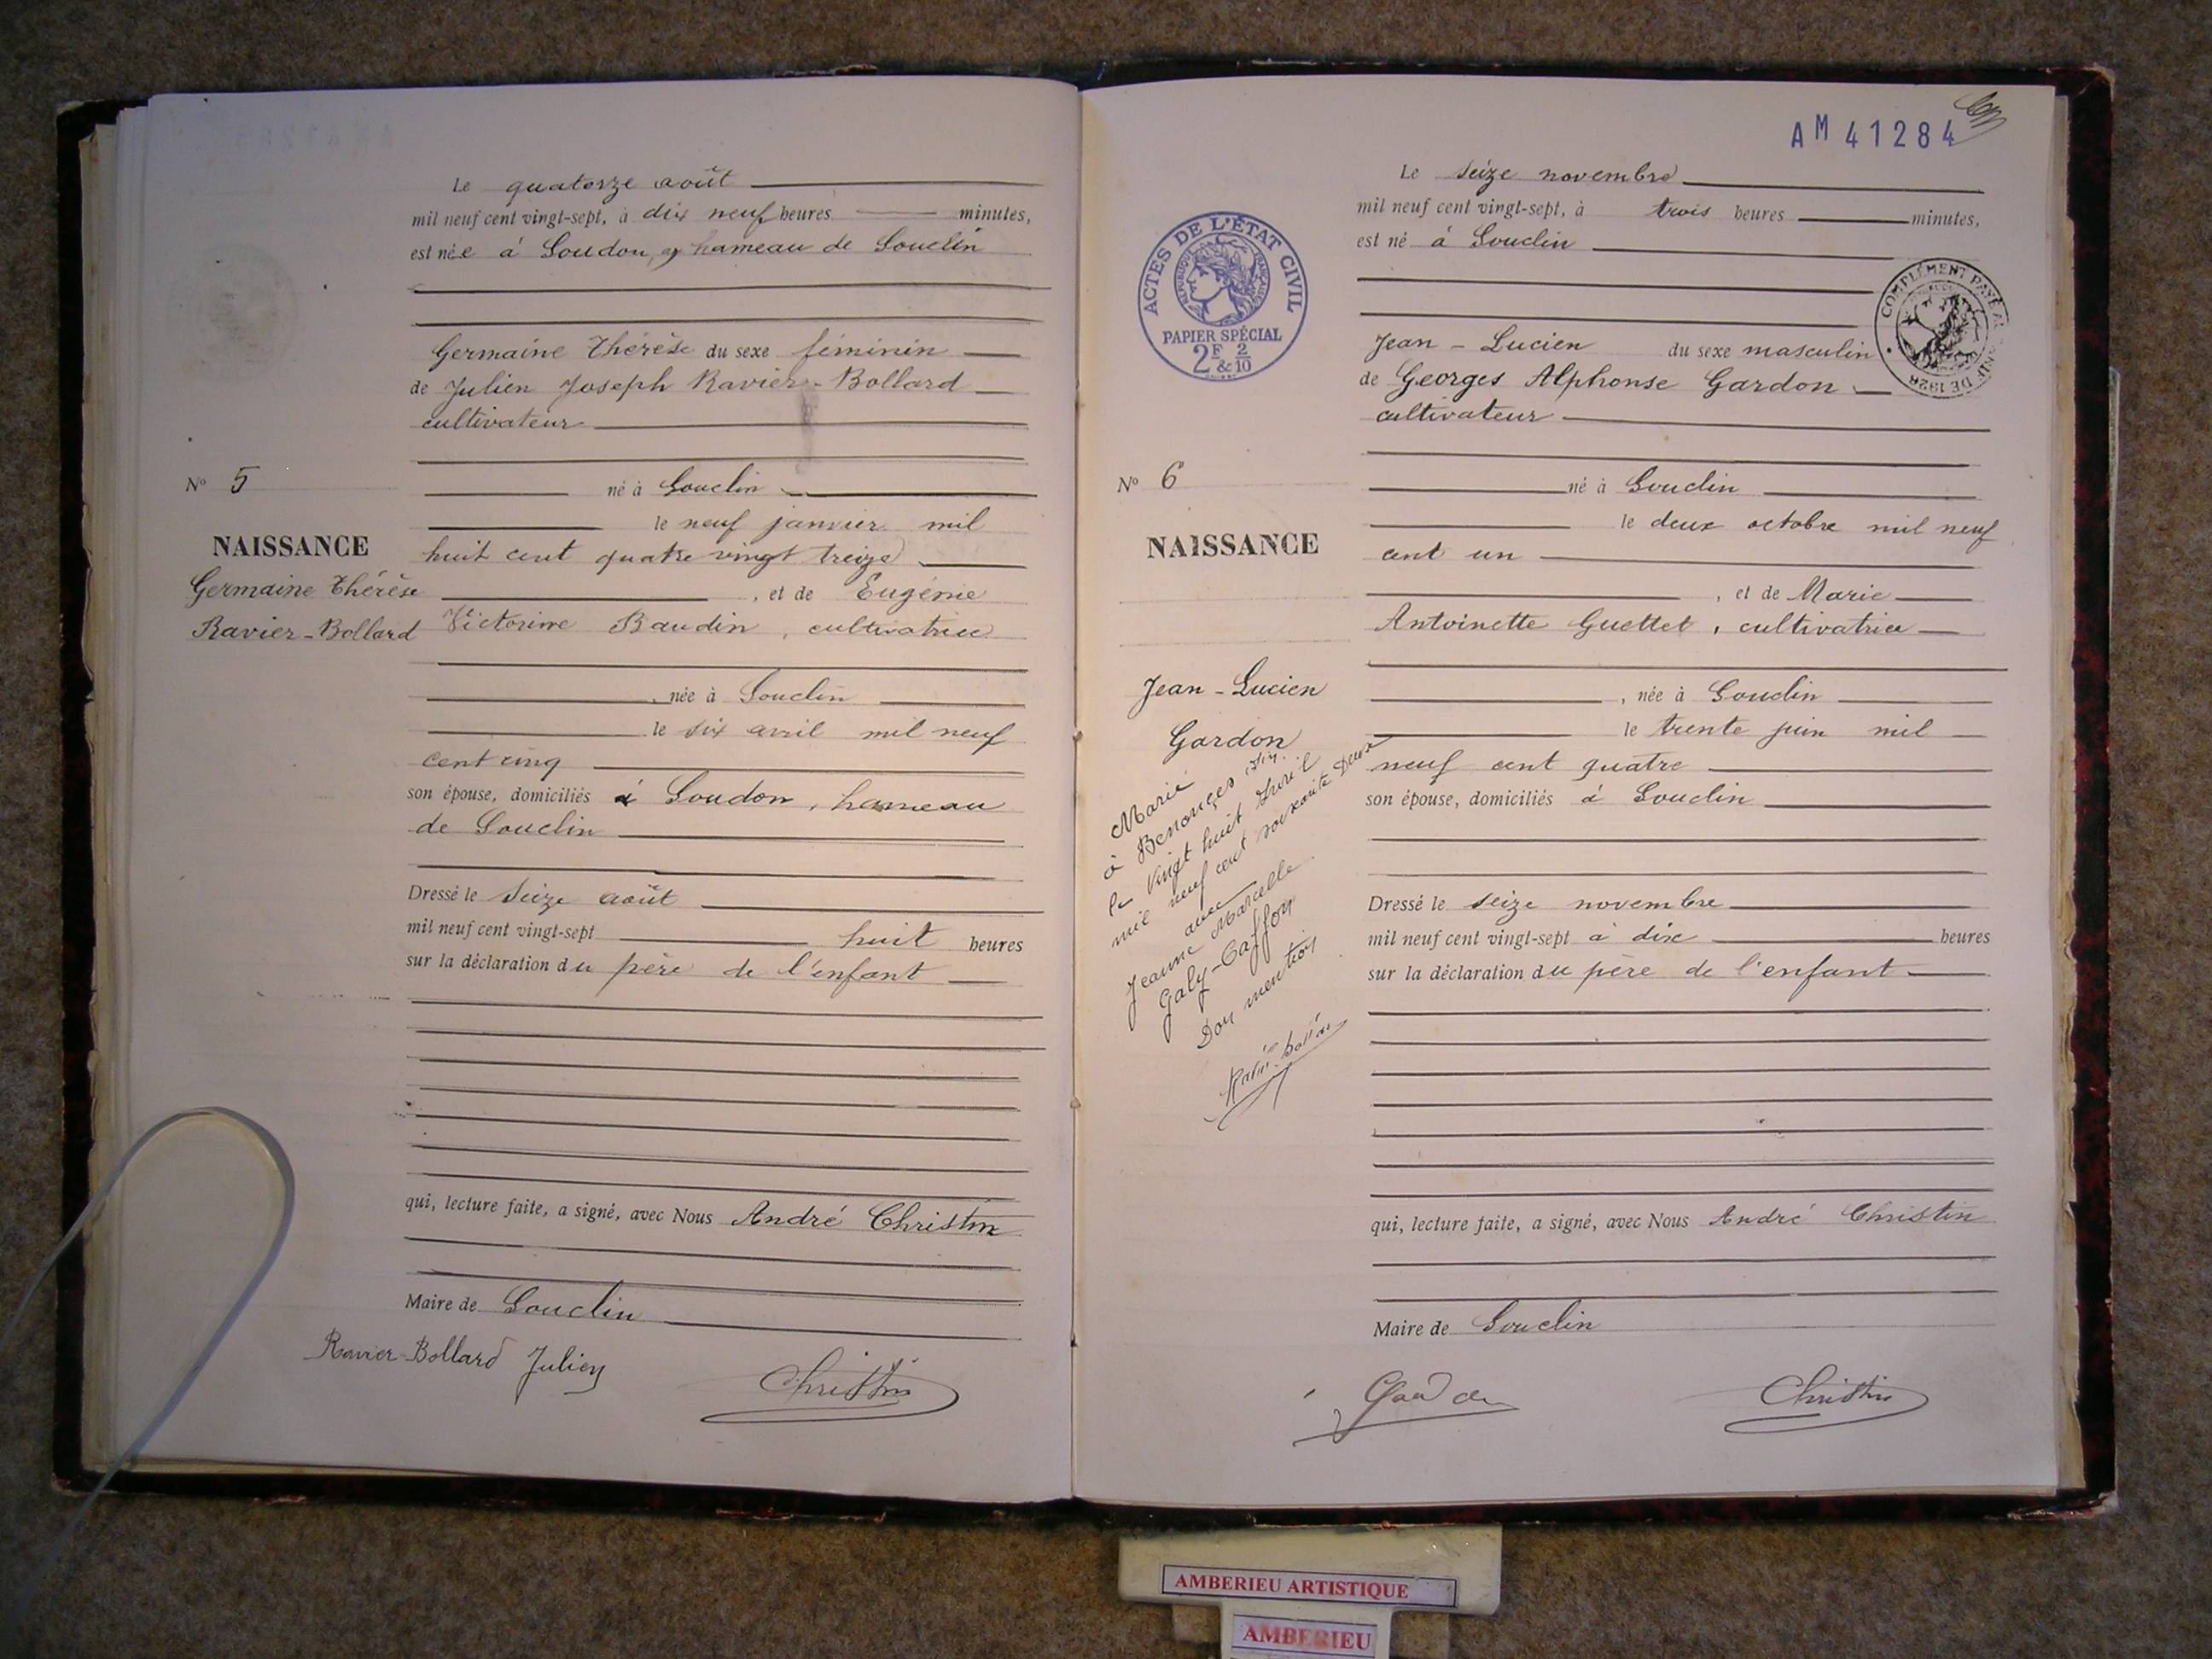 Le quatorze août
mil neuf cent vingt-sept, à dix neuf heures minutes,
est née à Soudon, hameau de Souclin
Germaine Thérèse du sexe féminin
de Julien Joseph Ravier-Bollard
cultivateur
né à Souclin
le neuf janvier mil
huit cent quatre vingt treize
, et de Eugénie
Victorine Baudin, cultivatrice
, née à Souclin
le six avril mil neuf
cent cinq
son épouse, domiciliés à Soudon, hameau
de Souclin
Dressé le seize août
mil neuf cent vingt-sept huit heures
sur la déclaration du père de l'enfant
qui, lecture faite, a signé, avec Nous André Christin
Maire de Souclin
Ravier-Bollard Julien
Christin
No 5
NAISSANCE
Germaine Thérèse
Ravier-Bollard
AM 41284
Le seize novembre
mil neuf cent vingt-sept, à trois heures minutes,
est né à Souclin
Jean-Lucien du sexe masculin
de Georges Alphonse Gardon
cultivateur
né à Souclin
le deux octobre mil neuf
cent un
, et de Marie
Antoinette Guettet, cultivatrice
, née à Souclin
le trente juin mil
neuf cent quatre
son épouse, domiciliés à Souclin
Dressé le seize novembre
mil neuf cent vingt-sept à dix heures
sur la déclaration du père de l'enfant
qui, lecture faite, a signé, avec Nous André Christin
Maire de Souclin
Gardon
Christin
ACTES DE L'ÉTAT CIVIL
RÉPUBLIQUE FRANÇAISE
PAPIER SPÉCIAL
2F & 2/10
COMPLÉMENT PAYÉ
DE 1928
No 6
NAISSANCE
Jean-Lucien
Gardon
Marié
à Benonces
le vingt huit Avril
mil neuf cent soixante Deux
avec
Jeanne Marcelle
Galy-Caffoy
Dou mention
AMBERIEU ARTISTIQUE
AMBERIEU